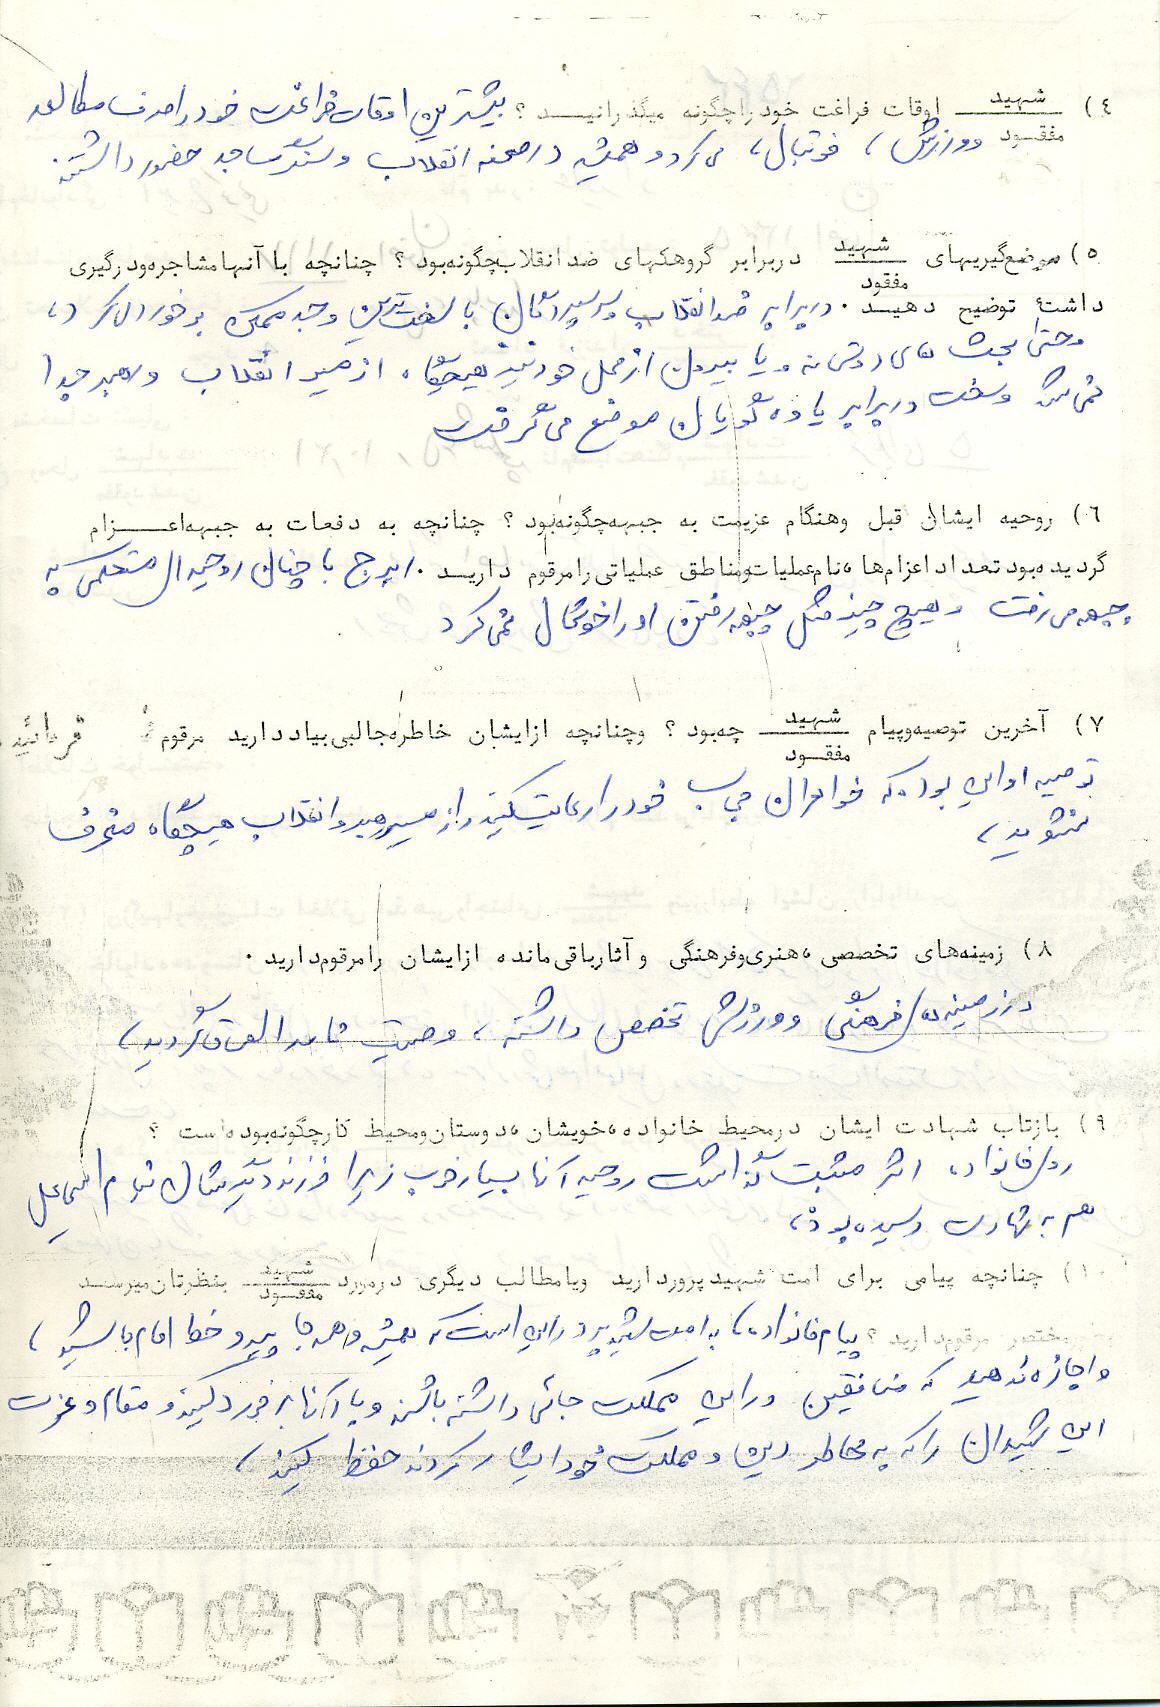 ۴) شهید/مفقود اوقات فراغت خود را چگونه میگذرانیـد ؟ بیشترین اوقات فراغت خود را صرف مطالعه
و ورزش ، فوتبال ، می کرد و همیشه در صحنه انقلاب و سنگر مساجد حضور داشتند
۵) موضع‌گیریهای شهید/مفقود دربرابر گروهکهای ضد انقلاب چگونه بود ؟ چنانچه با آنها مشاجره و درگیری
داشت توضیح دهیـد . در برابر ضد انقلاب و سردمداران با سخت ترین وجه ممکن برخورد می کرد ،
و حتی بحث های و یا بیرون از محل خود نیز هیچگاه ، از مسیر انقلاب و رهبر جدا
نمی شد و سخت در برابر یاوه گویان موضع می گرفت
۶) روحیه ایشان قبل و هنگام عزیمت به جبهه چگونه بود ؟ چنانچه به دفعات به جبهه اعـزام
گردیده بود تعداد اعزام‌ها ، نام عملیات و مناطق عملیاتی را مرقوم داریـد . ایرج با چنان روحیه ای مستحکمی به
جبهه می رفت و هیچ چیز مثل جبهه رفتن او را خوشحال نمی کرد
۷) آخرین توصیه و پیام شهید/مفقود چه بود ؟ و چنانچه از ایشان خاطره جالبی بیاد دارید مرقوم فرمائید .
توصیه او این بود که خواهران حجاب خود را رعایت کنید و از مسیر رهبر و انقلاب هیچگاه منحرف
نشوید ،
۸) زمینه‌های تخصصی ، هنری و فرهنگی و آثار باقی مانده از ایشان را مرقوم دارید .
در زمینه های فرهنگی و ورزش تخصص داشته ، وصیت نامه الصاق گردید ،
۹) بازتاب شهادت ایشان در محیط خانواده ، خویشان ، دوستان و محیط کار چگونه بوده است ؟
روی خانواده ، اثر مثبت گذاشت روحیه آنها بسیار خوب زیرا فرزند دیگرشان بنام اسماعیل
هم به شهادت رسیده بود ،
۱۰) چنانچه پیامی برای امت شهید پرور دارید و یا مطالب دیگری در مورد شهید/مفقود بنظرتان میرسـد
مختصر مرقوم دارید ؟ پیام خانواده ، به امت شهید پرور این است که همیشه و همه جا پیرو خط امام باشید ،
و اجازه ندهید که منافقین در این مملکت جائی داشته باشند و با آنها برخورد کنید و مقام و عزت
این شهیدان را که به خاطر دین و مملکت خود ایثار کردند حفظ کنید ،